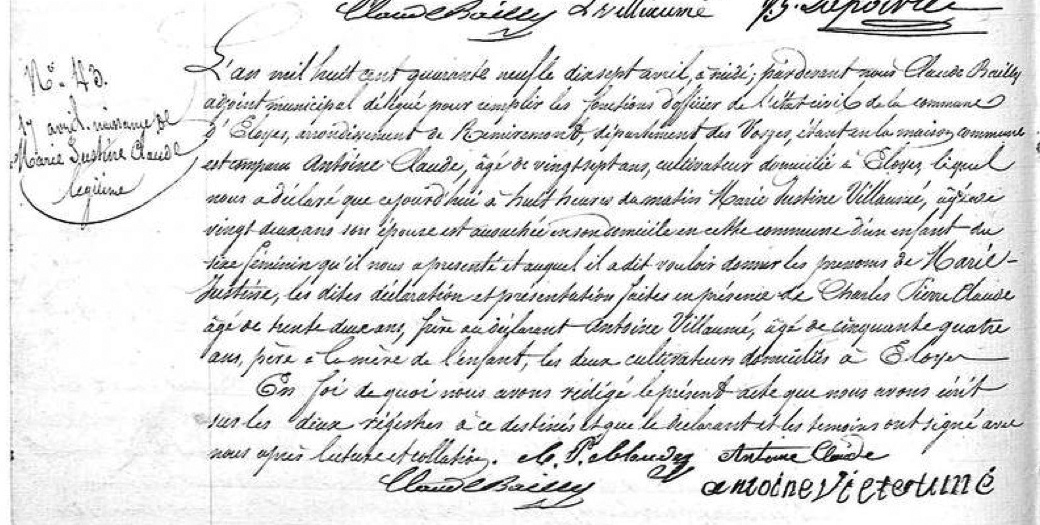 Claude Bailly A Villaumé
N° 43.
17 avril. naissance de
Marie Justine Claude
légitime
L'an mil huit cent quarante neuf le dix sept avril, à midi, pardevant nous Claude Bailly
adjoint municipal délégué pour remplir les fonctions d'officier de l'état civil de la commune
d'Eloyes, arrondissement de Remiremond, département des Vosges, étant en la maison commune
est comparu Antoine Claude, âgé de vingt sept ans, cultivateur domicilié à Eloyes, lequel
nous a déclaré que cejourd'hui à huit heures du matin Marie Justine Villaumé, âgée de
vingt deux ans son épouse est accouchée en son domicile en cette commune d'un enfant du
sexe féminin qu'il nous a présenté et auquel il a dit vouloir donner les prenoms de Marie-
Justine, les dites déclaration et présentation faites en présence de Charles Pierre Claude
âgé de trente deux ans, frère au déclarant Antoine Villaumé, âgé de cinquante quatre
ans, père à la mère de l'enfant, les deux cultivateurs domiciliés à Eloyes
En foi de quoi nous avons rédigé le présent acte que nous avons écrit
sur les deux régistres à ce destinés et que le déclarant et les temoins ont signé avec
nous après lecture et collation. C. P. Claude Antoine Claude
Claude Bailly antoine